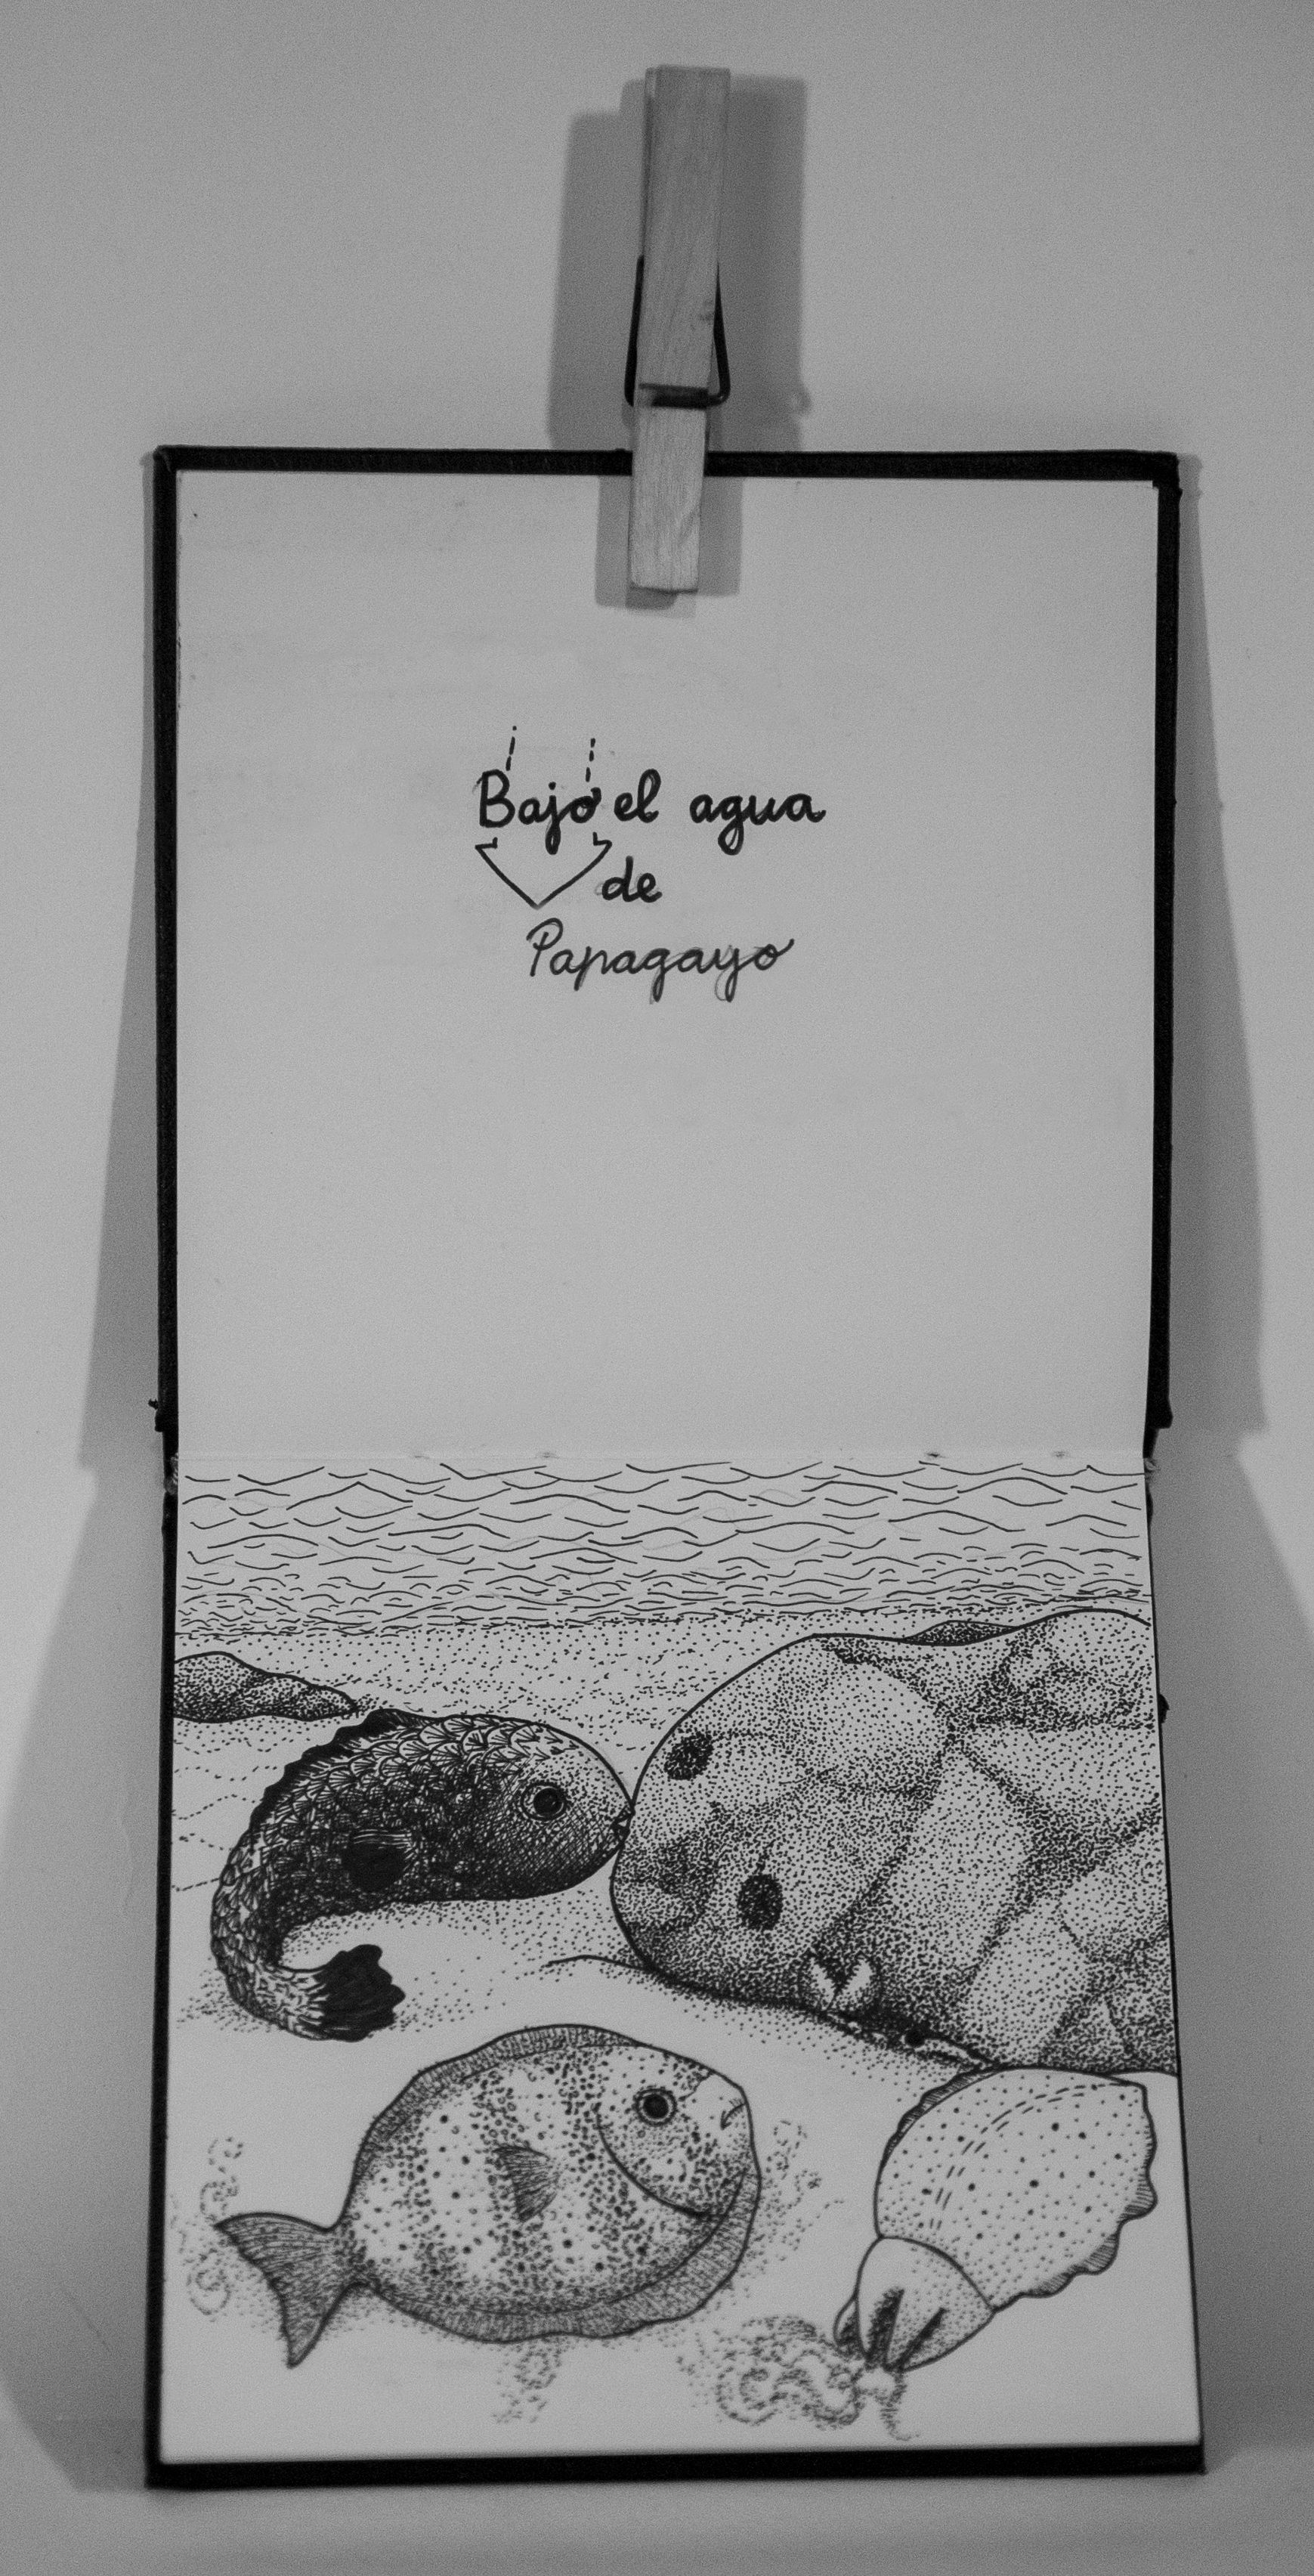 Bajo el agua
de
Papagayo